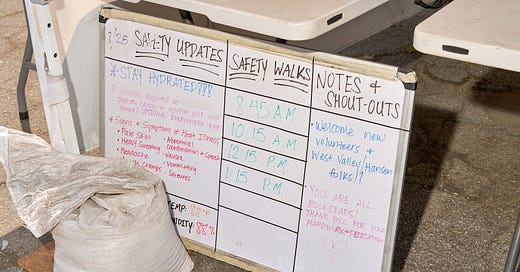 9/25 SAFETY UPDATES
* STAY HYDRATED???
* Signs & Symptoms of Heat Illness
• Pale Skin
• Heavy Sweating
• Headache
Cramps
- Abnormal
Coordination & Speech
- Nausea
- Vomitting
- Seizures
TEMP: 88°F
HUMIDITY: 88%
SAFETY WALKS
8:45 A.M.
10:15 A.M.
12:15 P.M.
1:15 P.M.
NOTES &
SHOUT-OUTS
• Welcome new
volunteers &
West Valley/Hansen
folks!!
• YOU ARE ALL
ROCKSTARS!
THANK YOU FOR YOUR
HARDWORK & DEDICATION